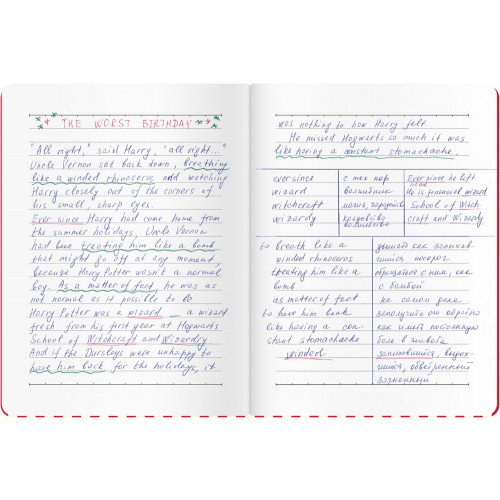 THE WORST BIRTHDAY
"All right," said Harry, "all right..."
Uncle Vernon sat back down, breathing
like a winded rhinoceros and watching
Harry closely out of the corners of
his small, sharp eyes.
Ever since Harry had come home from
the summer holidays, Uncle Vernon
had been treating him like a bomb
that might go off at any moment,
because Harry Potter wasn't a normal
boy. As a matter of fact, he was as
not normal as it possible to be
Harry Potter was a wizard — a wizard
fresh from his first year at Hogwarts
School of Witchcraft and Wizardry.
And if the Dursleys were unhappy to
have him back for the holidays, it
was nothing to how Harry felt.
He missed Hogwarts so much it was
like having a constant stomachache.
ever since с тех пор Ever since he left
wizard волшебник He is financial wizard
witchcraft магия, School of Witch-
wizardry колдовство craft and Wizardry
волшебство
to breath like a дышать как
winded rhinoceros шийся носорог
threating him like a обращаться с ним, как
bomb с бомбой
as matter of fact на самом деле
to have him bank заполучить его обратно
like having a con- как иметь постоянную
stant stomachache боль в животе
winded запыхавшийся,
шийся,